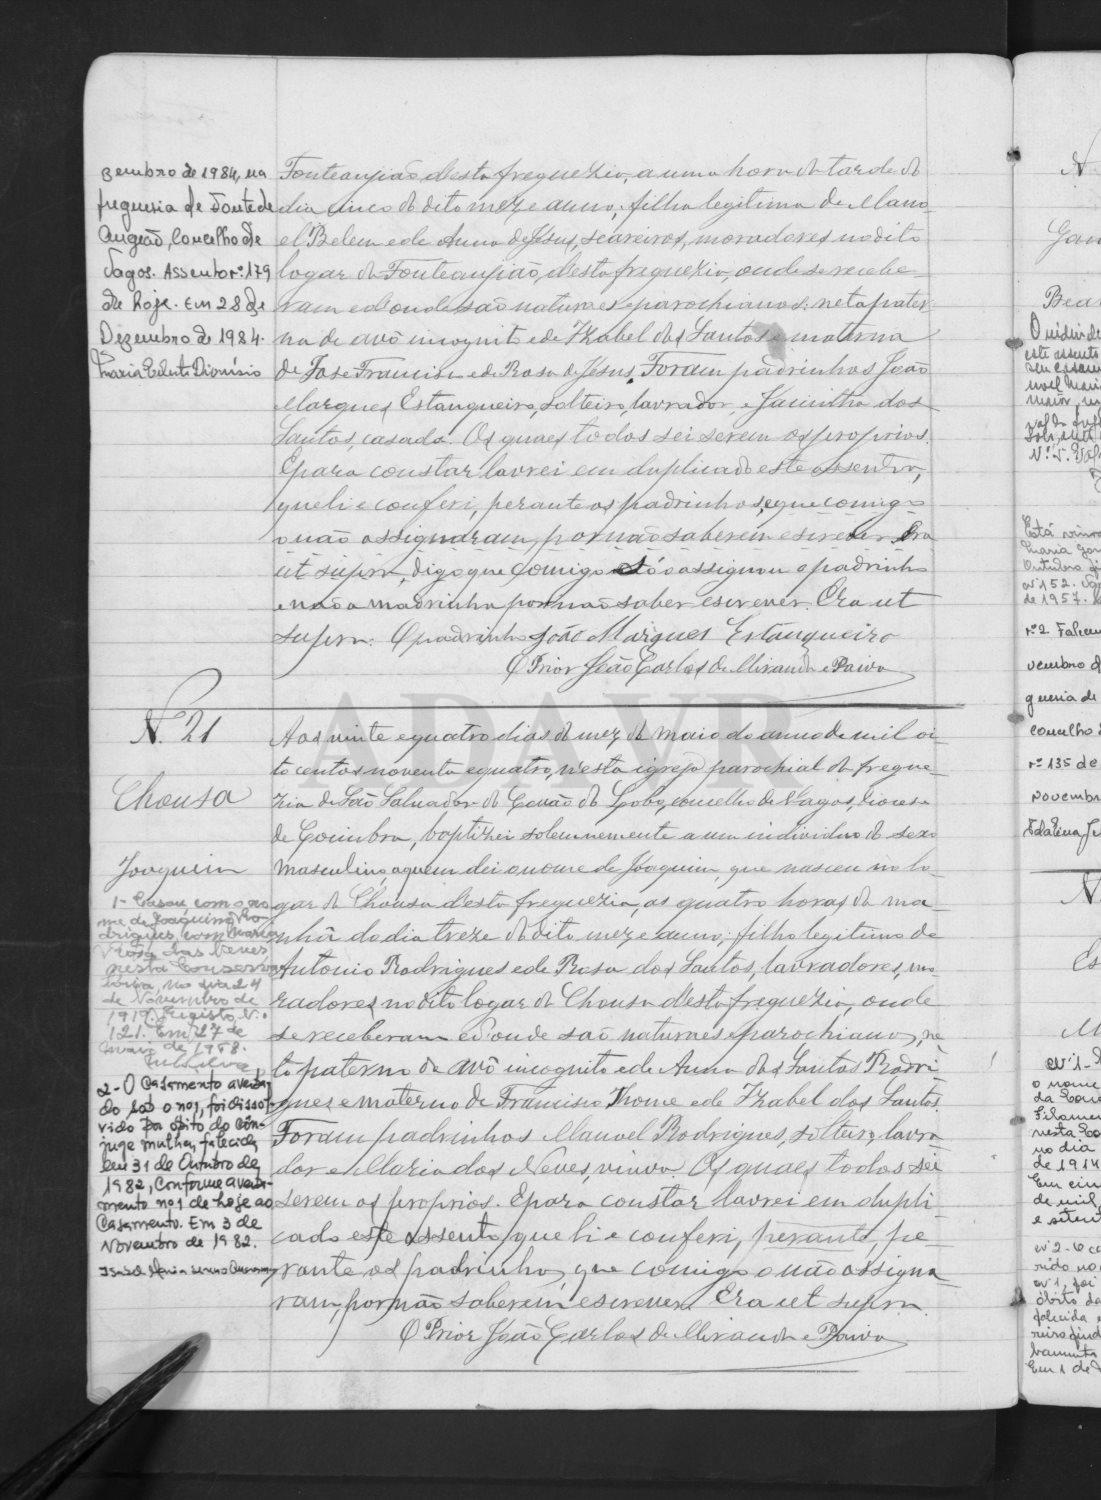 zembro de 1984, na
freguesia de Fonte de
Angeão, Concelho de
Vagos. Assento nº 179
de hoje. Em 28 de
Dezembro de 1984.
Fonteangião d'esta freguezia, a uma hora da tarde do
dia cinco do dito mez e anno; filha legitima de Mano-
el Belem e de Anna de Jesus, seareiros, moradores no dito
logar de Fonteangião, d'esta freguezia, onde se recebe-
ram e d'onde são naturaes e parochianos: neta pater-
na de avô incognito e de Izabel dos Santos e materna
de Jose Francisco e de Rosa de Jesus. Foram padrinhos João
Marques Estanqueiro, solteiro, lavrador, e Jacintha dos
Santos, casada. Os quaes todos sei serem os proprios.
E para constar lavrei em duplicado este assento,
que li e conferi, perante os padrinhos, que comigo
o não assignaram, por não saberem escrever. Era
ut supra, digo que comigo só o assignou o padrinho
e não a madrinha por não saber escrever. Era ut
supra. O padrinho João Marques Estanqueiro
O Prior João Carlos de Miranda e Paiva
ADAVR
N. 21
Chousa
Joaquim
1- Casou com o no
me de Joaquim Ro
drigues, com Maria
Rosa das Neves
nesta Conserva
toria, no dia 24
de Novembro de
1919. Registo N.º
121. Em 27 de
Maio de 1958.
2- O Casamento averba
do sob o nº1, foi dissol
vido por óbito do côn-
juge mulher, falecida
em 31 de Outubro de
1982, Conforme averba-
mento nº1 de hoje ao
Casamento. Em 3 de
Novembro de 1982.
Aos vinte e quatro dias do mez de maio do anno de mil oi-
to centos noventa e quatro, n'esta igreja parochial da fregue-
zia de São Salvador do Covão do Lobo, concelho de Vagos, diocese
de Coimbra, baptizei solemnemente a um individuo do sexo
masculino, a quem dei o nome de Joaquim, que nasceu no lo-
gar da Chousa d'esta freguezia, as quatro horas da ma-
nhã do dia treze do dito mez e anno; filho legitimo de
Antonio Rodrigues e de Rosa dos Santos, lavradores, mo
radores no dito logar da Chousa d'esta freguezia, onde
se receberam e d'onde são naturaes e parochianos; ne
to paterno de avô incognito e de Anna dos Santos Rodri
gues e materno de Francisco Thome e de Izabel dos Santos.
Foram padrinhos Manoel Rodrigues, solteiro, lavra
dor e Maria das Neves, viuva. Os quaes todos sei
serem os proprios. E para constar lavrei em dupli-
cado este assento, que li e conferi, perante, pe-
rante os padrinhos, que comigo o não assigna-
ram, por não saberem escrever. Era ut supra.
O Prior João Carlos de Miranda e Paiva